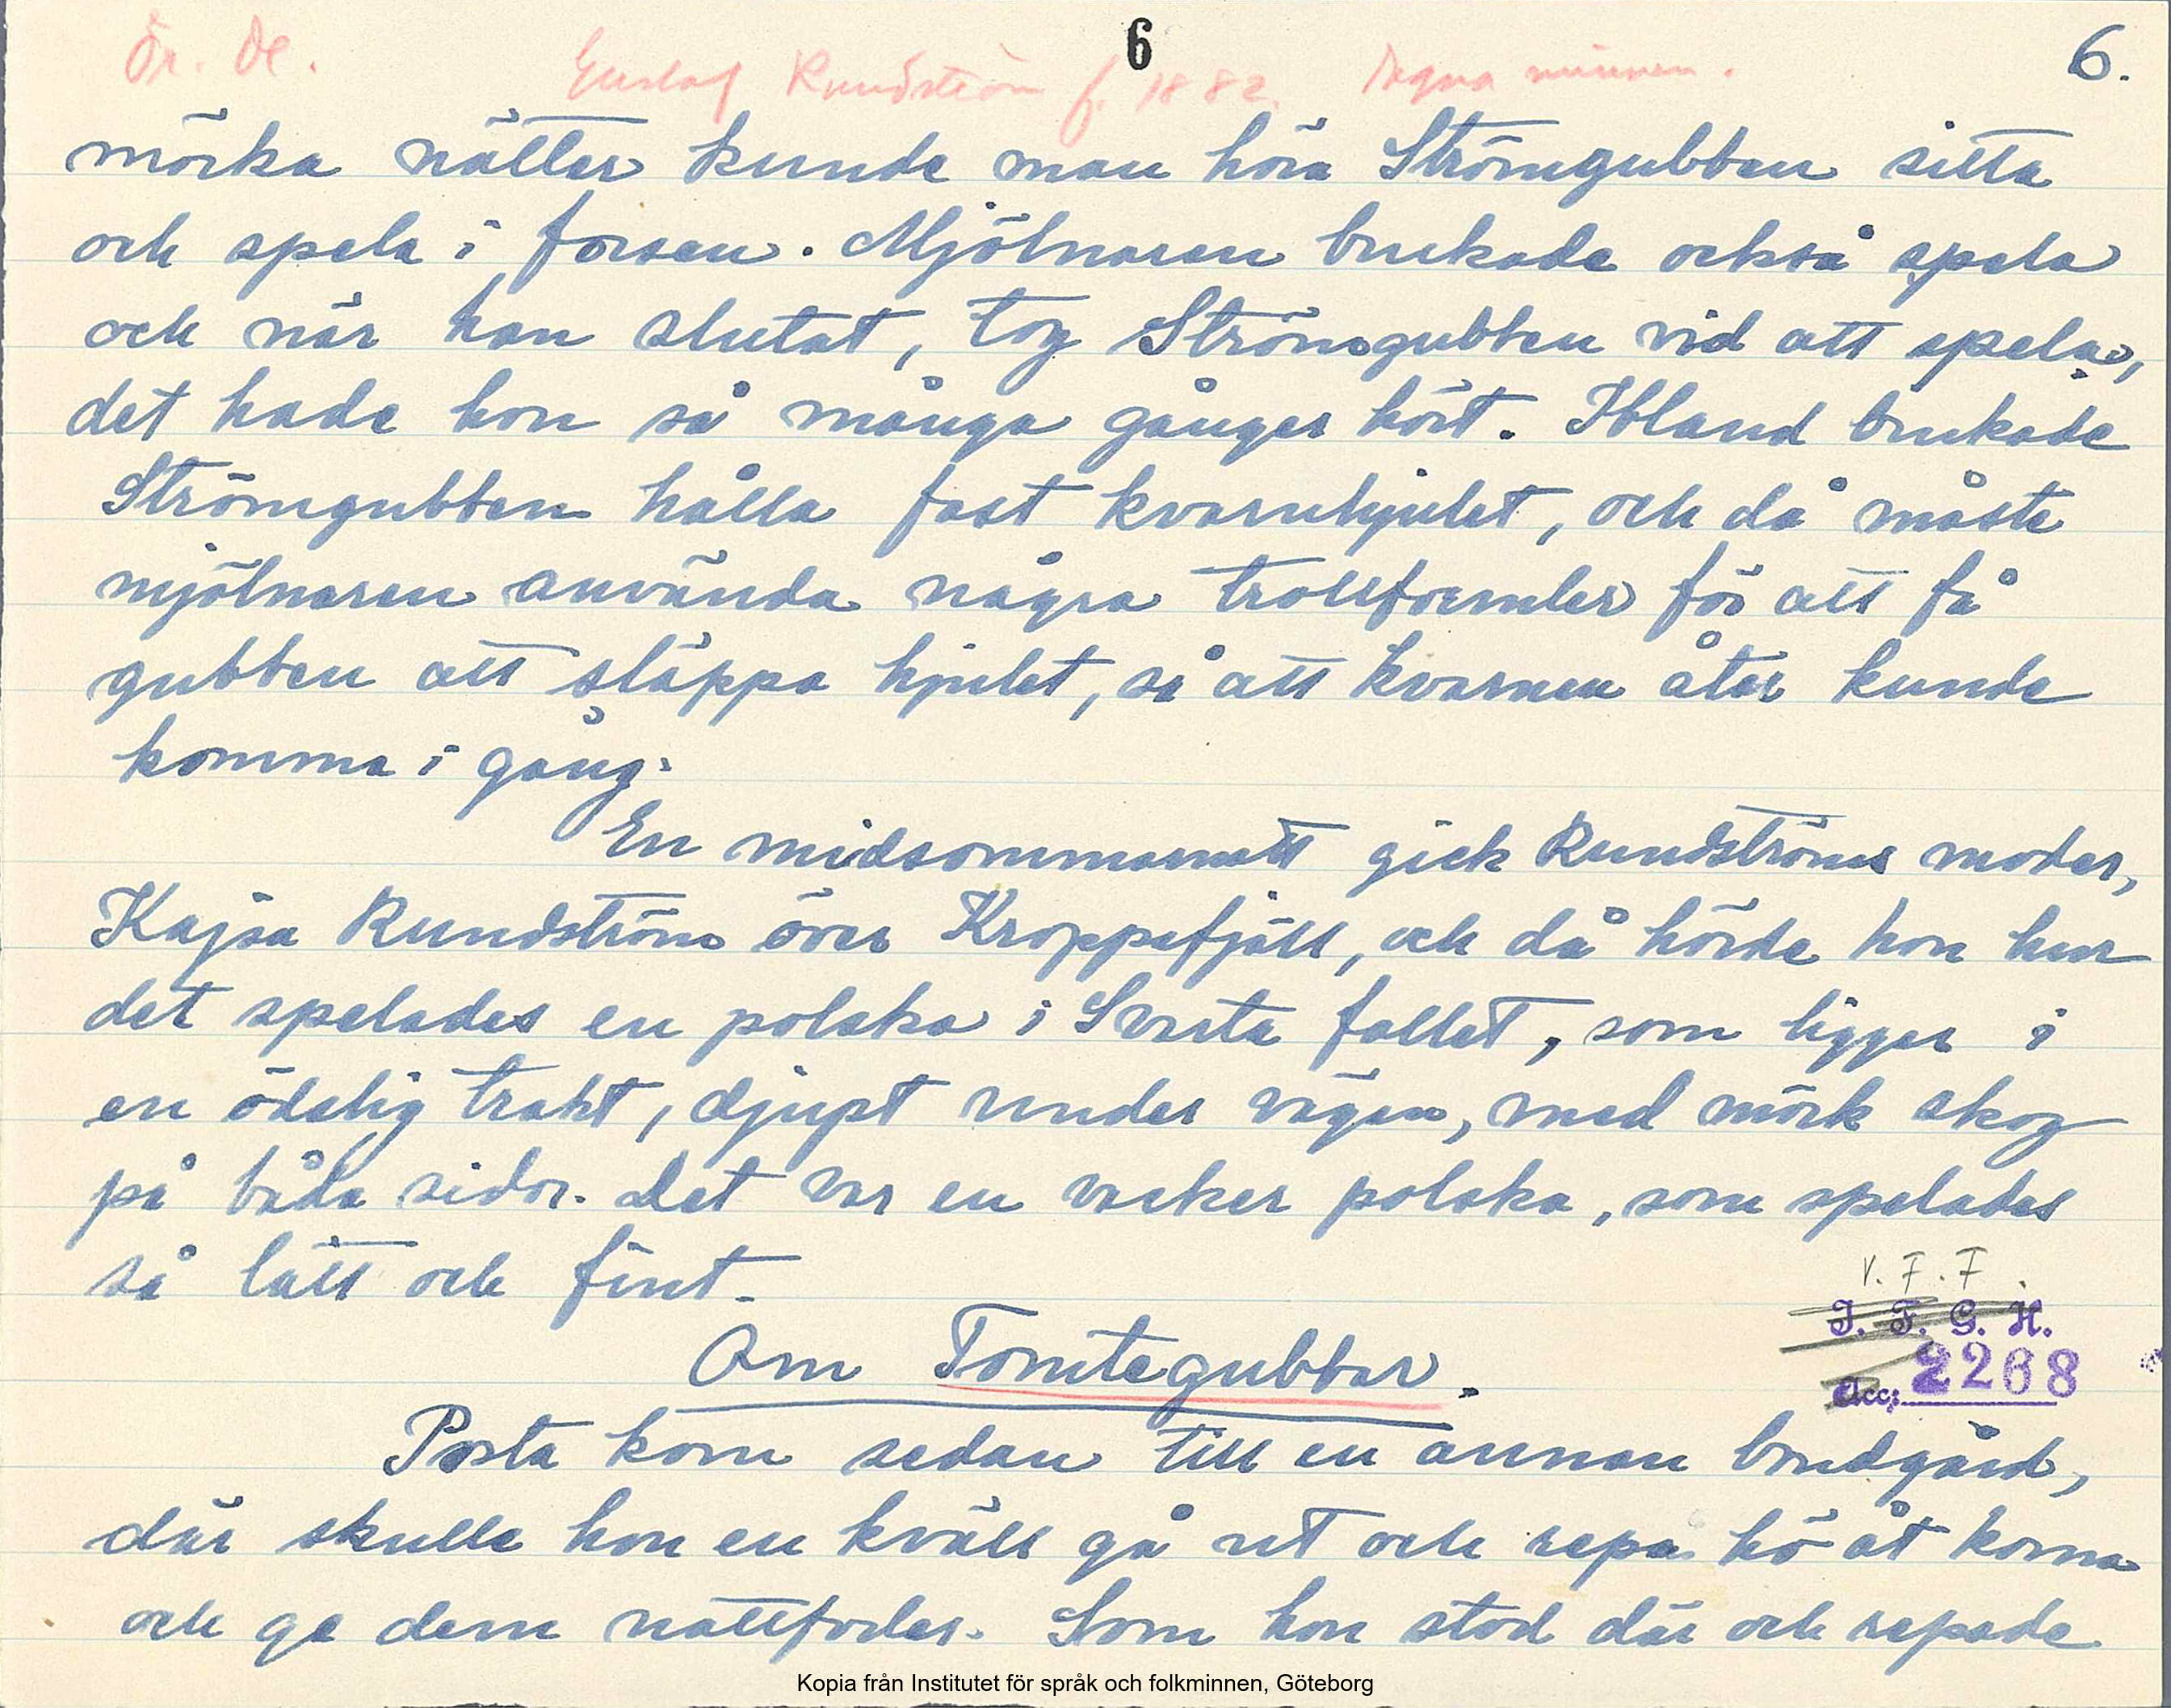 6
6.
Ör. Dl.
Gustaf Rundström f. 1882. Degna minnen.
mörka nätter kunde man höra Strömgubben sitta
och spela i forsen. Mjölnaren brukade också spela
och när han slutat, tog Strömgubben vid att spela,
det hade hon så många gånger hört. Ibland brukade
Strömgubben hålla fast kvarnhjulet, och då måste
mjölnaren använda några trollformler för att få
gubben att släppa hjulet, så att kvarnen åter kunde
komma i gång.
En midsommarnatt gick Rundströms moder,
Kajsa Rundström över Kroppefjäll, och då hörde hon hur
det spelades en polska i Svarta fallet, som ligger i
en ödslig trakt, djupt under vägen, med mörk skog
på båda sidor. Det var en vacker polska, som spelades
så lätt och fint.
V. F. F.
I. F. G. H.
Acc: 2268
Om Tomtegubbar.
Posta kom sedan till en annan bondgård,
där skulle hon en kväll gå ut och repa hö åt korna
och ge dem nattfoder. Som hon stod där och repade
Kopia från Institutet för språk och folkminnen, Göteborg